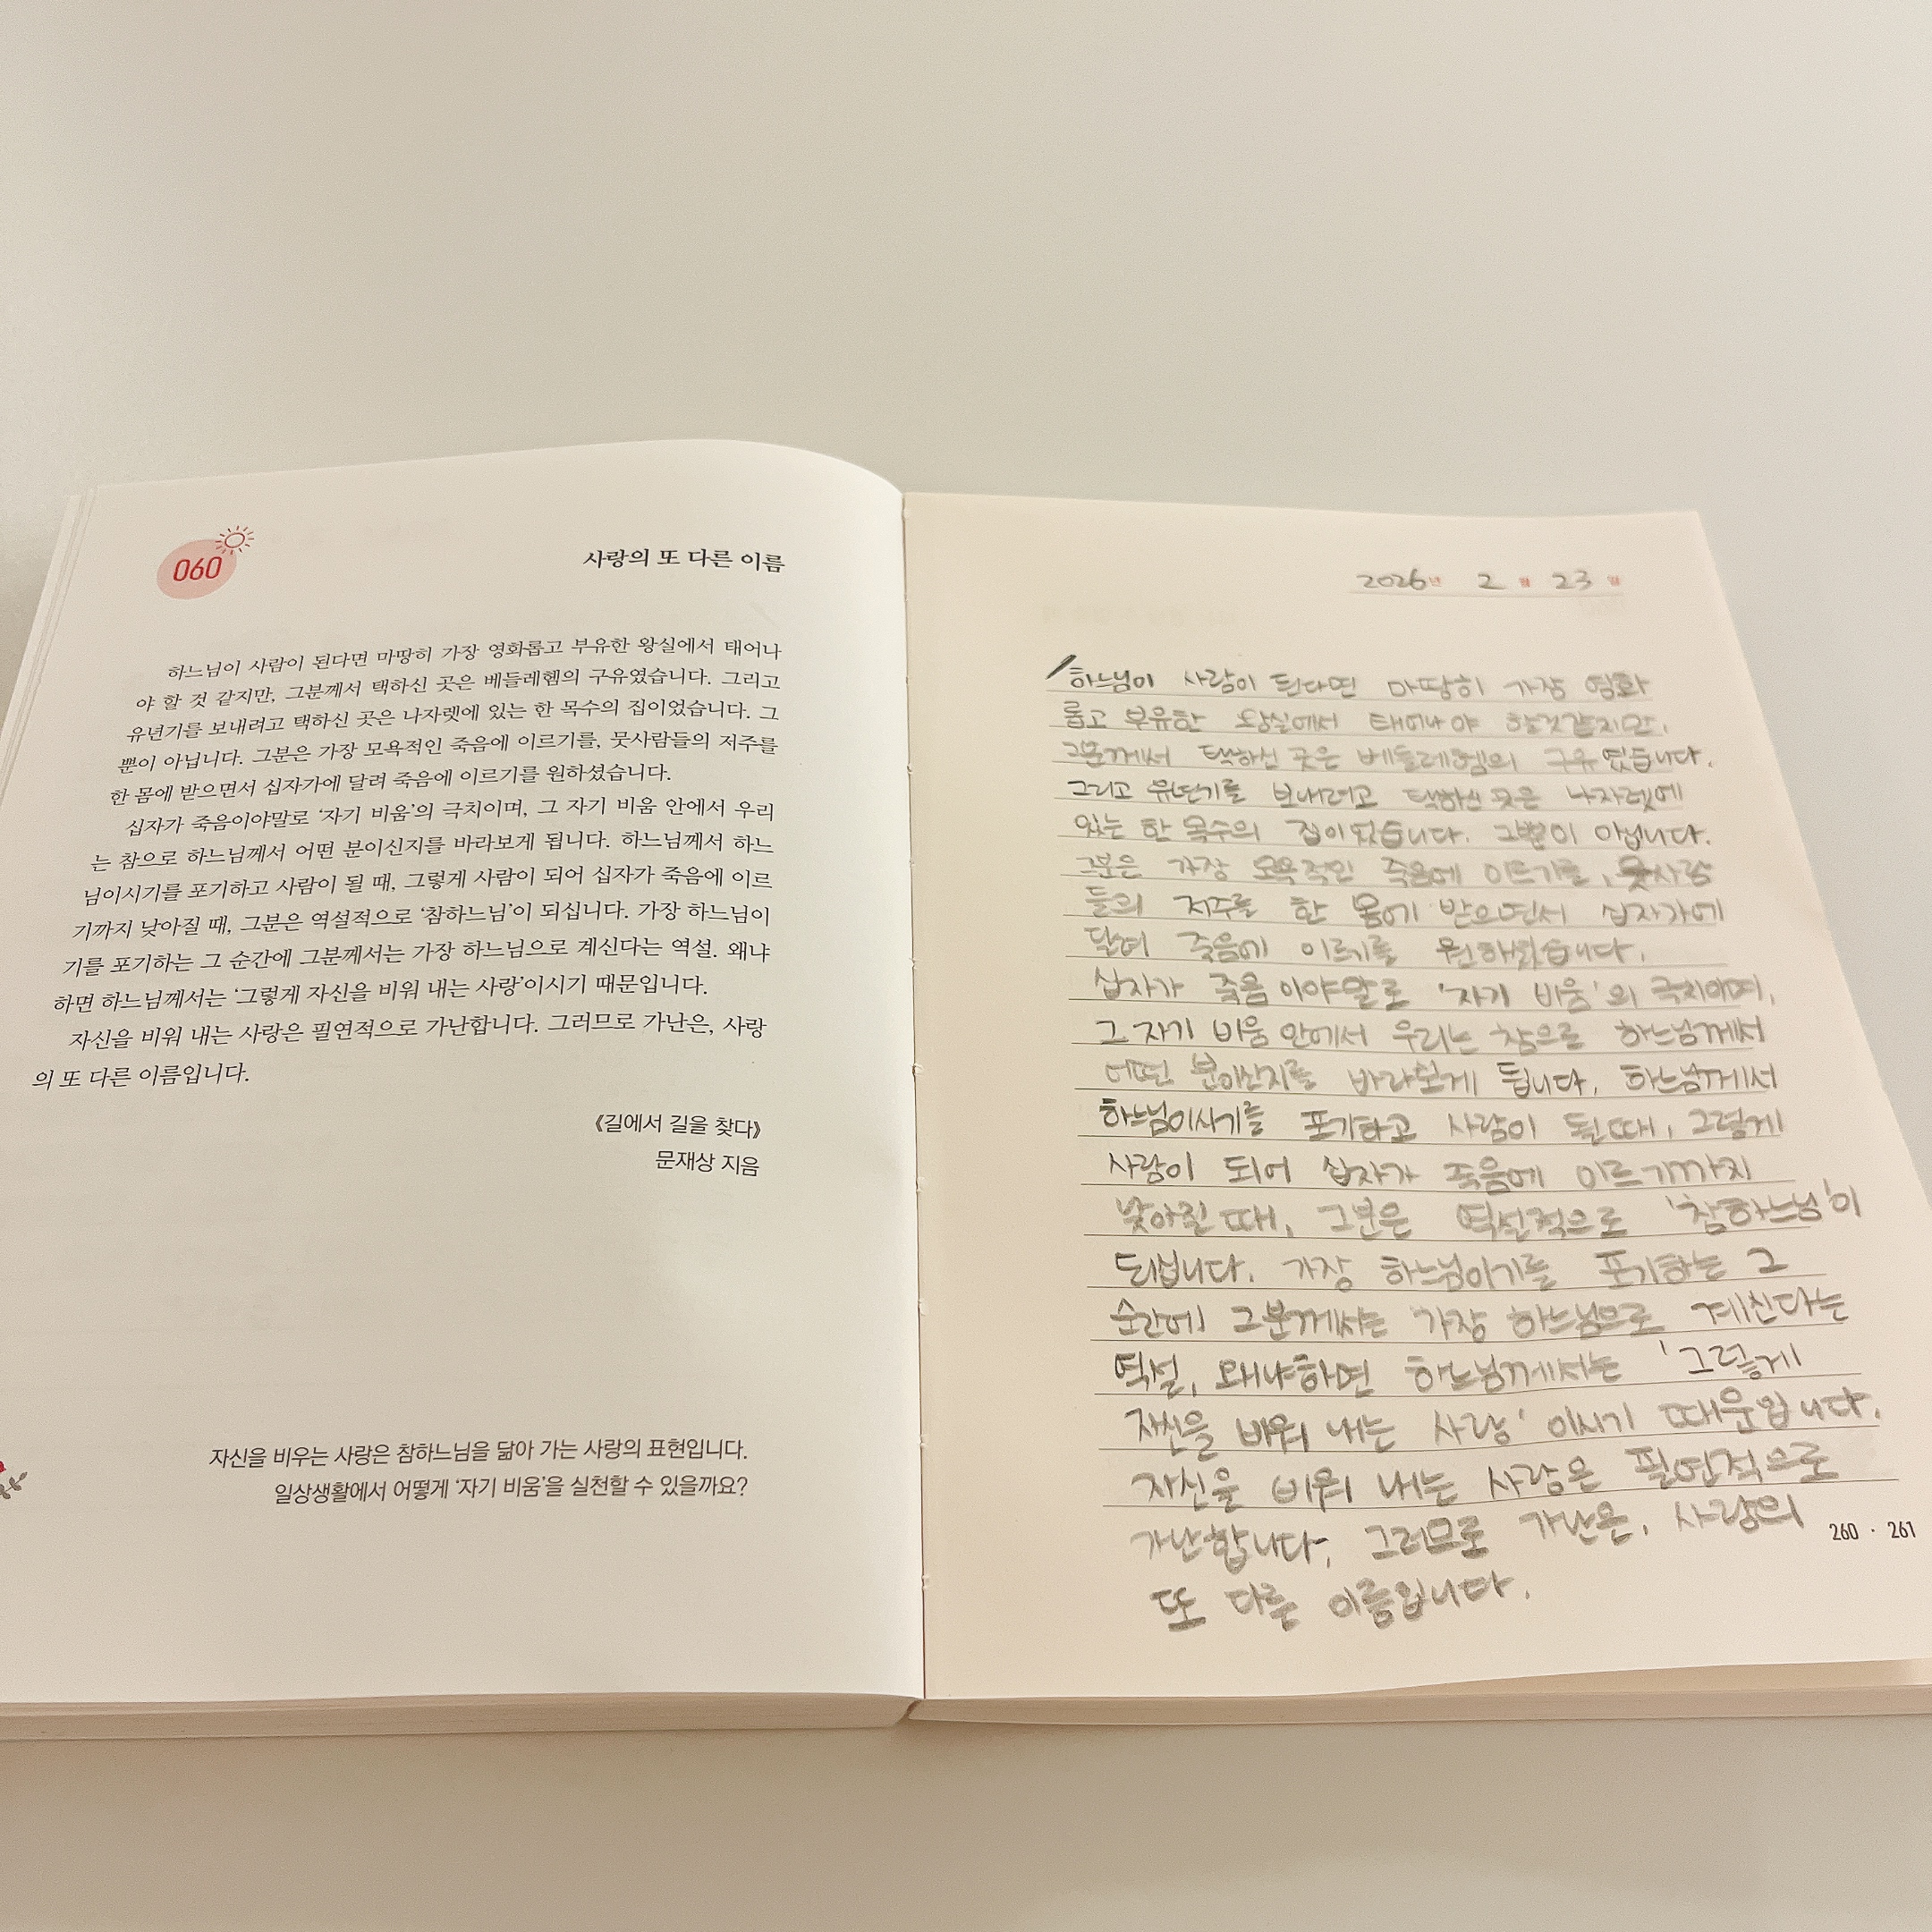 060
사랑의 또 다른 이름
하느님이 사람이 된다면 마땅히 가장 영화롭고 부유한 왕실에서 태어나
야 할 것 같지만, 그분께서 택하신 곳은 베들레헴의 구유였습니다. 그리고
유년기를 보내려고 택하신 곳은 나자렛에 있는 한 목수의 집이었습니다. 그
뿐이 아닙니다. 그분은 가장 모욕적인 죽음에 이르기를, 뭇사람들의 저주를
한 몸에 받으면서 십자가에 달려 죽음에 이르기를 원하셨습니다.
십자가 죽음이야말로 ‘자기 비움’의 극치이며, 그 자기 비움 안에서 우리
는 참으로 하느님께서 어떤 분이신지를 바라보게 됩니다. 하느님께서 하느
님이시기를 포기하고 사람이 될 때, 그렇게 사람이 되어 십자가 죽음에 이르
기까지 낮아질 때, 그분은 역설적으로 ‘참하느님’이 되십니다. 가장 하느님이
기를 포기하는 그 순간에 그분께서는 가장 하느님으로 계신다는 역설. 왜냐
하면 하느님께서는 ‘그렇게 자신을 비워 내는 사랑’이시기 때문입니다.
자신을 비워 내는 사랑은 필연적으로 가난합니다. 그러므로 가난은, 사랑
의 또 다른 이름입니다.
《길에서 길을 찾다》
문재상 지음
자신을 비우는 사랑은 참하느님을 닮아 가는 사랑의 표현입니다.
일상생활에서 어떻게 ‘자기 비움’을 실천할 수 있을까요?
2026년 2 월 23 일
하느님이 사람이 된다면 마땅히 가장 영화
롭고 부유한 왕실에서 태어나야 할것같지만,
그분께서 택하신 곳은 베들레헴의 구유였습니다.
그리고 유년기를 보내려고 택하신 곳은 나자렛에
있는 한 목수의 집이었습니다. 그뿐이 아닙니다.
그분은 가장 모욕적인 죽음에 이르기를, 뭇사람
들의 저주를 한 몸에 받으면서 십자가에
달려 죽음에 이르기를 원하셨습니다.
십자가 죽음이야말로 '자기 비움'의 극치이며,
그 자기 비움 안에서 우리는 참으로 하느님께서
어떤 분이신지를 바라보게 됩니다. 하느님께서
하느님이시기를 포기하고 사람이 될 때, 그렇게
사람이 되어 십자가 죽음에 이르기까지
낮아질 때, 그분은 역설적으로 '참하느님'이
되십니다. 가장 하느님이기를 포기하는 그
순간에 그분께서는 가장 하느님으로 계신다는
역설. 왜냐하면 하느님께서는 '그렇게
자신을 비워 내는 사랑' 이시기 때문입니다.
자신을 비워 내는 사랑은 필연적으로
가난합니다. 그러므로 가난은, 사랑의
또 다른 이름입니다.
260 · 261